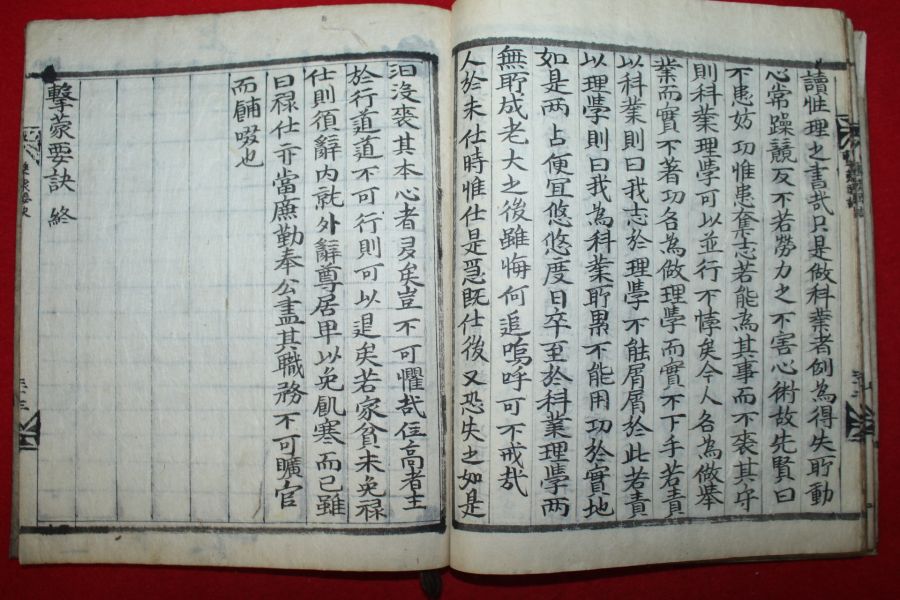 讀性理之書哉只是做科業者例為得失所動
心常躁競反不若勞力之不害心術故先賢曰
不患妨功惟患奪志若能為其事而不喪其守
則科業理學可以並行不悖矣今人名為做舉
業而實不著功名為做理學而實不下手若責
以科業則曰我志於理學不能屑屑於此若責
以理學則曰我為科業所累不能用功於實地
如是两占便宜悠悠度日卒至於科業理學两
無所成老大之後雖悔何追嗚呼可不戒哉
人於未仕時惟仕是急既仕後又恐失之如是
汩沒喪其本心者多矣豈不可懼哉位高者主
於行道道不可行則可以退矣若家貧未免禄
仕則須辭內就外辭尊居卑以免飢寒而已雖
曰禄仕亦當廉勤奉公盡其職務不可曠官
而餔啜也
擊蒙要訣 終